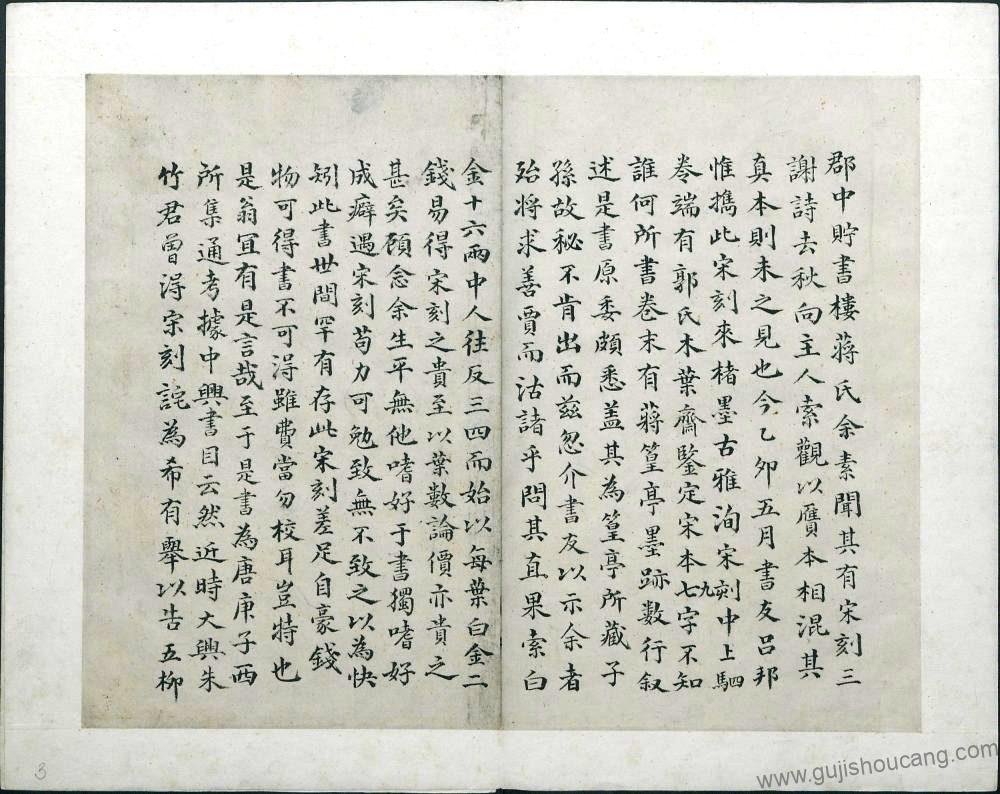 郡中貯書樓蔣氏余素聞其有宋刻三
謝詩去秋向主人索觀以贋本相混其
真本則未之見也今乙卯五月書友呂邦
惟擕此宋刻來楮墨古雅洵宋刻中上駟
九
卷端有郭氏木葉齋鍳定宋本七字不知
誰何所書卷末有蔣篁亭墨跡數行叙
述是書原委頗悉盖其為篁亭所藏子
孫故秘不肯出而兹忽介書友以示余者
殆將求善賈而沽諸乎問其直果索白
金十六兩中人往反三四而始以每葉白金二
錢易得宋刻之貴至以葉數論價亦貴之
甚矣顧念余生平無他嗜好于書獨嗜好
成癖遇宋刻苟力可勉致無不致之以為快
矧此書世間罕有存此宋刻差足自豪錢
物可得書不可得雖費當勿校耳豈特也
是翁宜有是言哉至于是書為唐庚子西
所集通考據中興書目云然近時大興朱
竹君曾得宋刻詫為希有舉以告五柳
www.gujishoucang.com
3